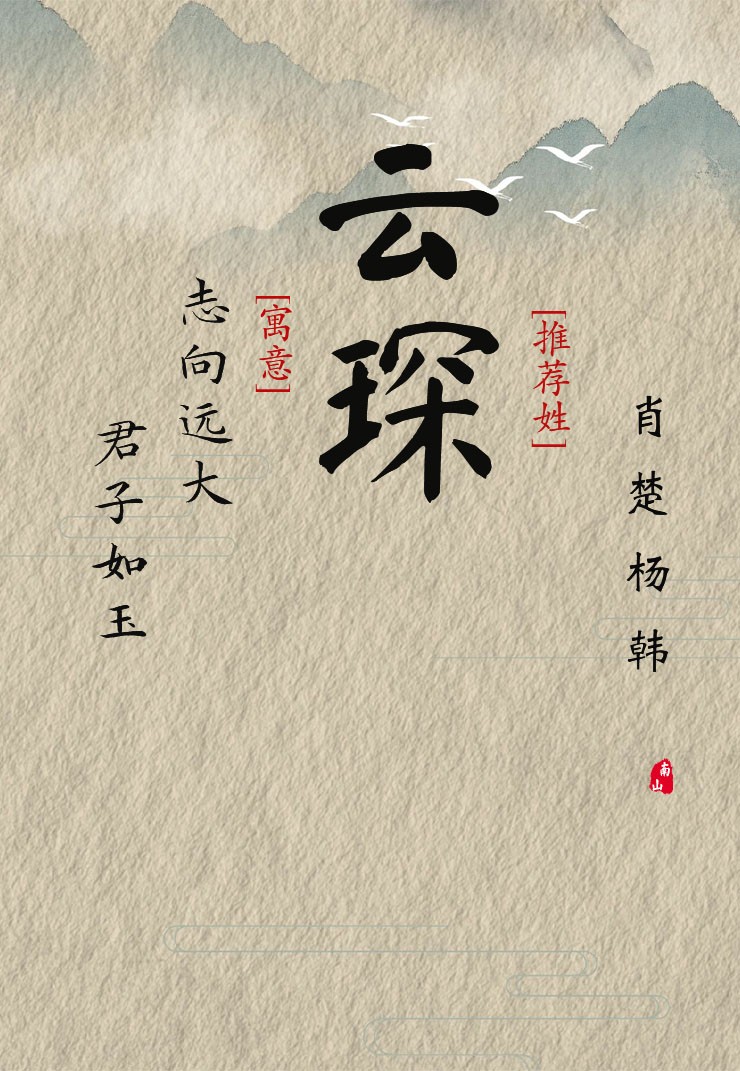 云琛
[推荐姓]
肖楚杨韩
[寓意]
志向远大
君子如玉
南山